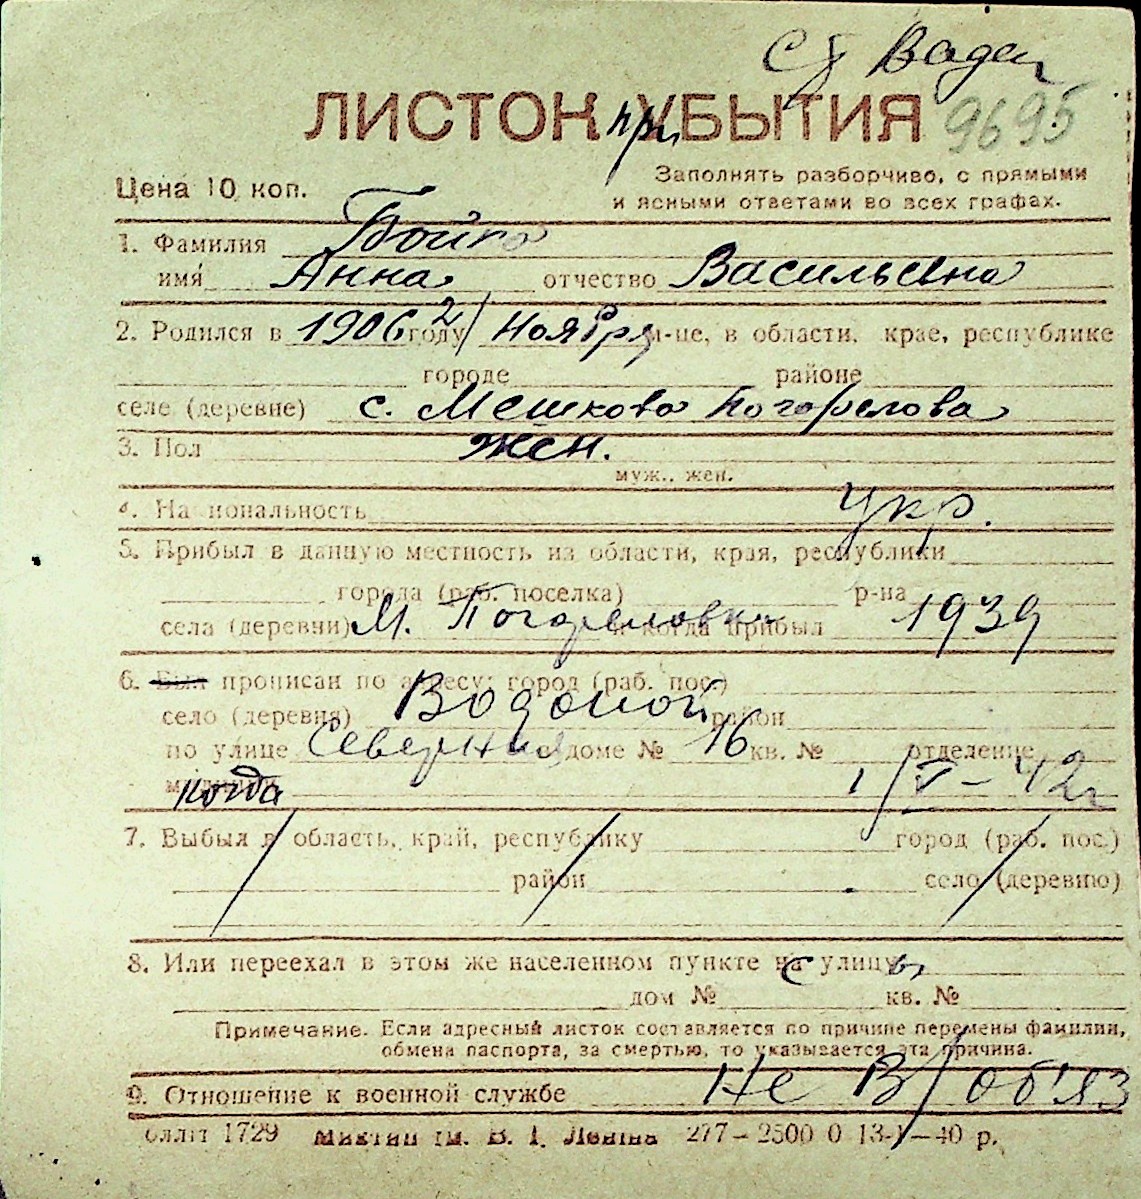 Ст Вадеи
ЛИСТОК при УБЫТИЯ 9695
Цена 10 коп.
Заполнять разборчиво, с прямыми
и ясными ответами во всех графах.
1. Фамилия Бойко
имя Анна отчество Васильевна
2. Родился в 1906 году 2/ Ноября м-це, в области, крае, республике
городе районе
селе (деревне) с. Мешкова Погорелова
3. Пол жен.
муж., жен.
4. Национальность укр.
5. Прибыл в данную местность из области, края, республики
города (раб. поселка) р-на
села (деревни) М. Погореловка и когда прибыл 1939
6. Был прописан по адресу: город (раб. пос.)
село (деревня) Водопой район
по улице Северная в доме № 16 кв. № отделение
милиции когда 1/V-42г
7. Выбыл в область, край, республику город (раб. пос.)
район село (деревню)
8. Или переехал в этом же населенном пункте на с улицу ы
дом № кв. №
Примечание. Если адресный листок составляется по причине перемены фамилии,
обмена паспорта, за смертью, то указывается эта причина.
9. Отношение к военной службе Не В/об'яз
1729 ім. В. І. Леніна 277—2500 0 13-І—40 р.